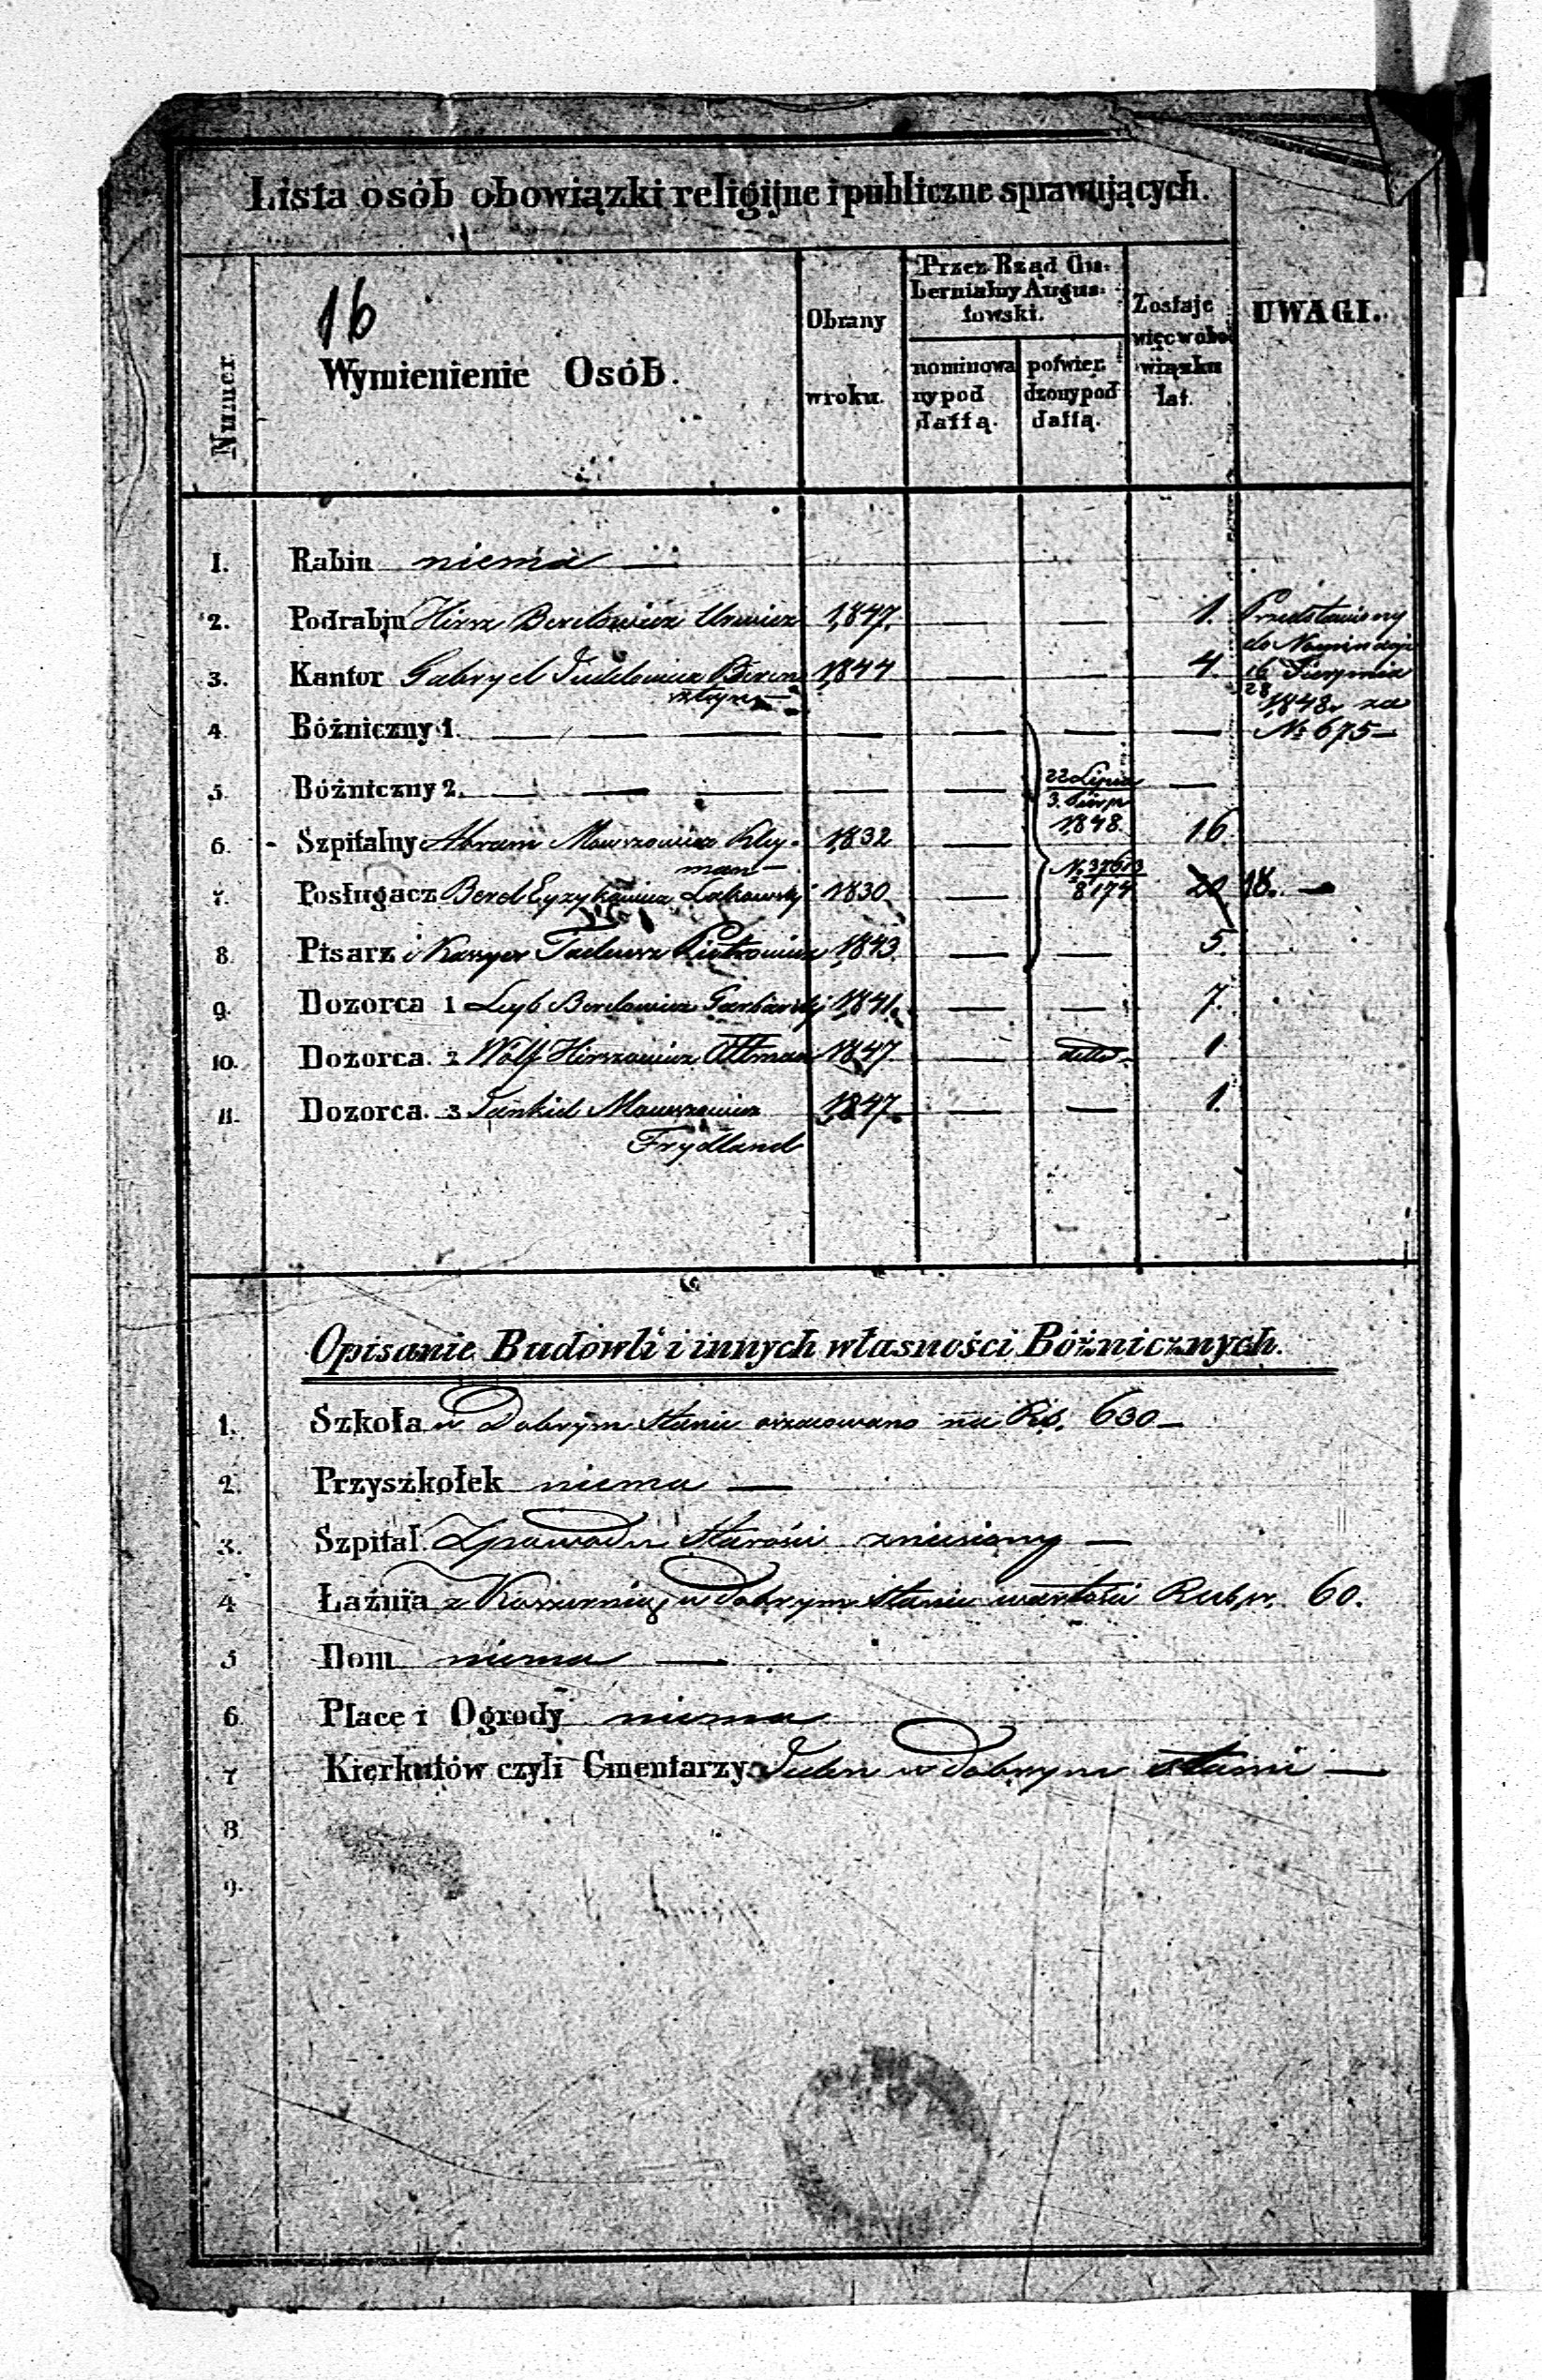 Lista osób obowiązki religijne i publiczne sprawujących.
16
Numer
Wymienienie Osób.
Obrany
w roku.
Przez Rząd Gu-
bernialny Augus-
towski.
nominowa
ny pod
dattą.
potwier
dzony pod
dattą.
Zostaje
więc w obo
wiązku
lat.
UWAGI.
1. Rabin niema —
2. Podrabin Hirsz Berelowicz 1847. — — 1. Przedstawiony
do Nominacji
3. Kantor Gabryel Judelowicz 1844 — — 4. 16 Sierpnia
28
1848 r. za
4. Bóżniczny 1. — — — — — — — № 675 —
5. Bóżniczny 2. — — — — — 22 Lipca —
3. Sierp
1848.
6. Szpitalny Abram Mowszowicz Kley- 1832 — 16.
man —
№ 37613
8174
7. Posługacz Berel Eyzykowicz 1830 — 20 18. —
8. Pisarz i Kassyer Tadeusz Piotrowicz 1843. — — 5.
9. Dozorca 1 Leyb Berelowicz Garbarski 1841. — — 7.
10. Dozorca. 2 Wolf Hirszowicz Altman 1847 — detto. 1
11. Dozorca. 3 Jankiel Mowszowicz 1847. — — 1.
Frydland
Opisanie Budowli i innych własności Bóżnicznych.
1. Szkoła w Dobrym stanie oszacowano na Rs. 630 —
2. Przyszkołek niema —
3. Szpital. Zpowodu starości zniesiony —
4 Łaźnia z Koszernią w dobrym stanie wartości Rub. sr. 60.
5 Dom niema —
6 Place i Ogrody niema
7 Kierkutów czyli Cmentarzy. Jeden w dobrym stanie —
8
9.